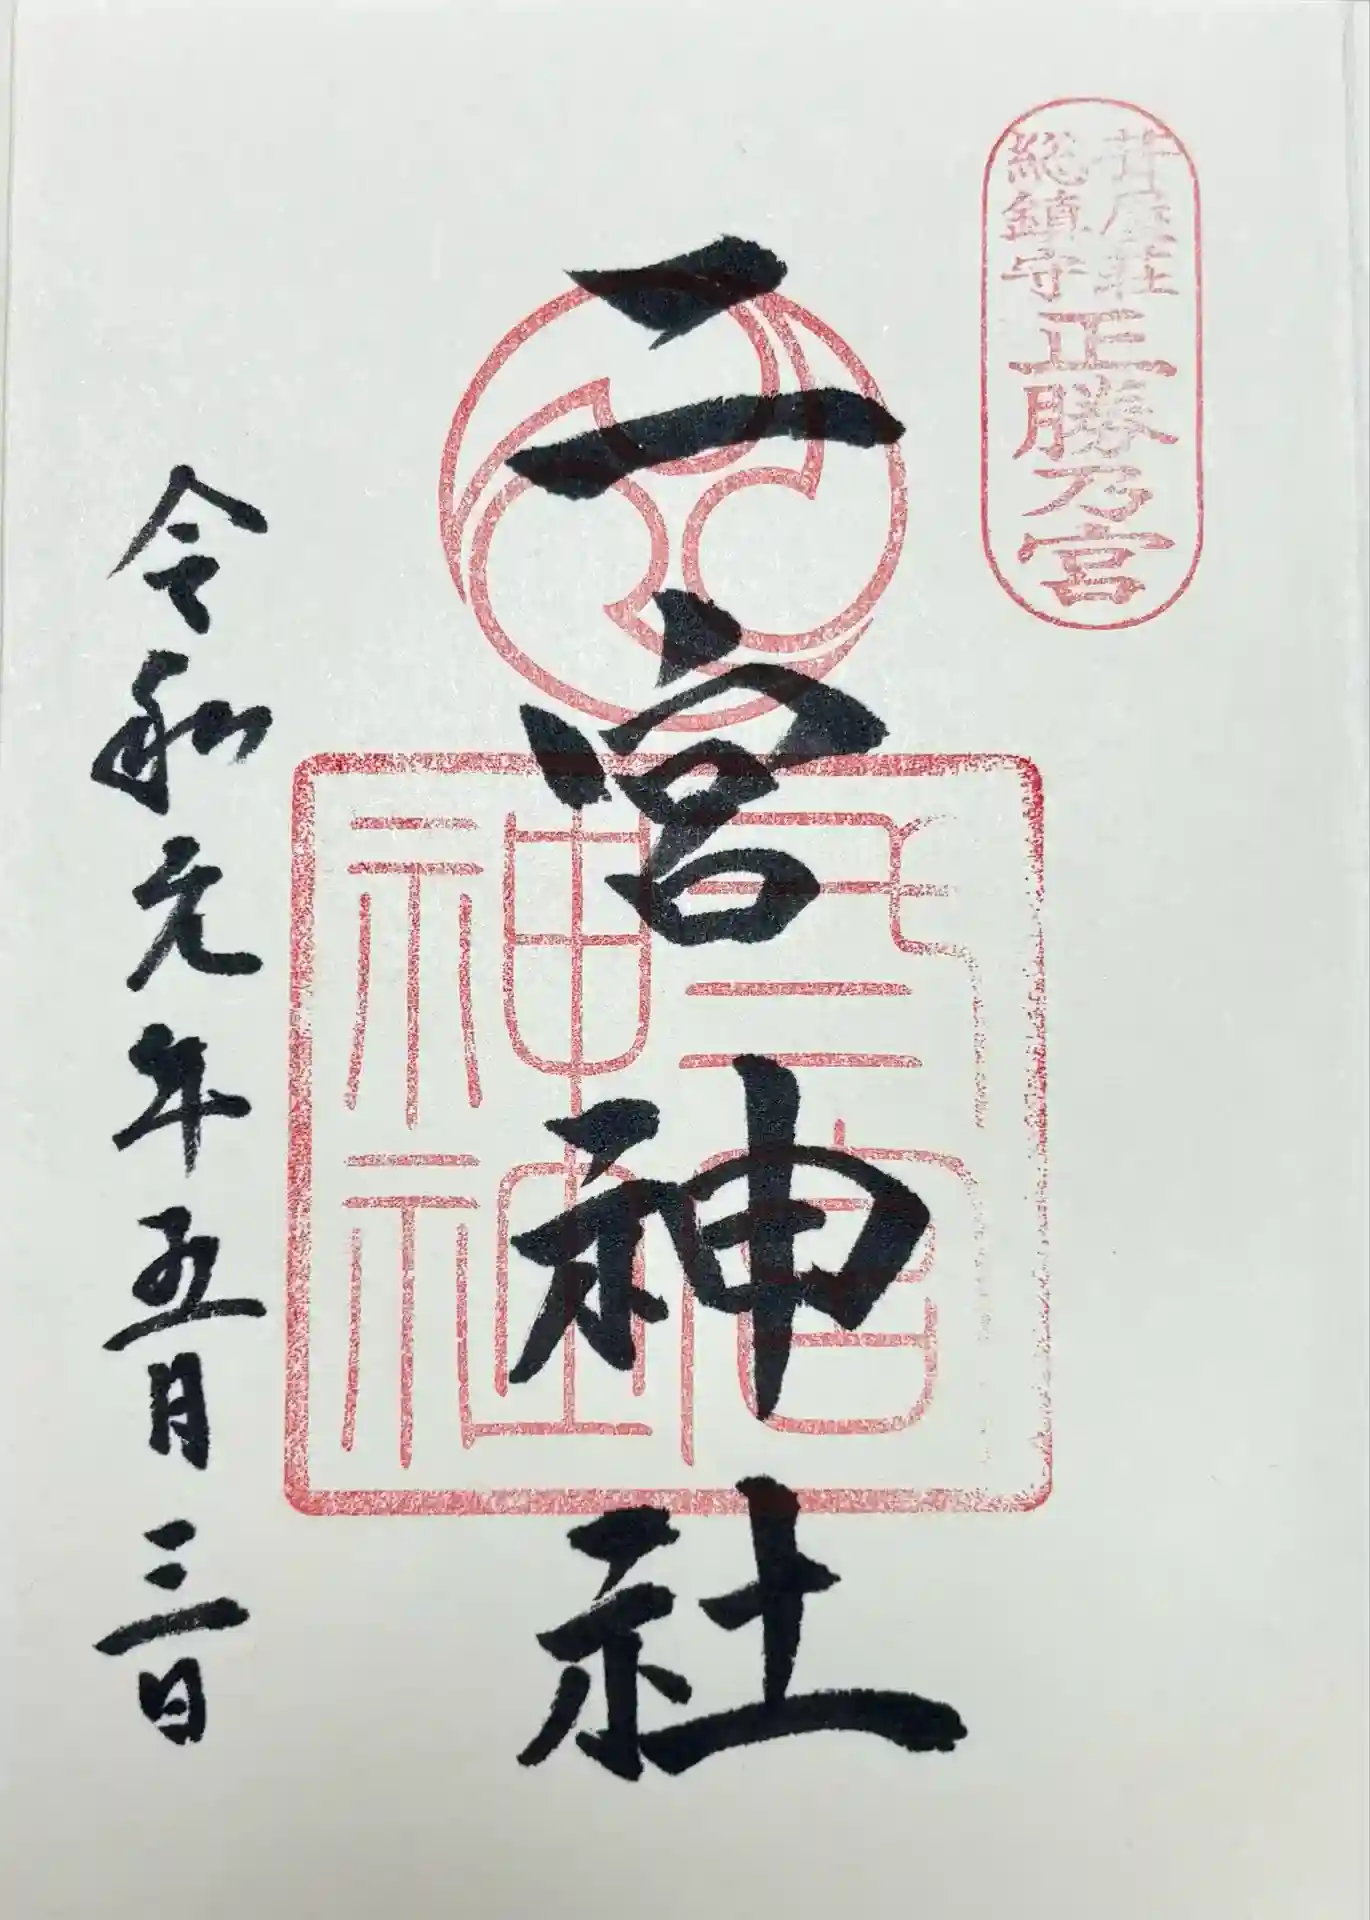 葺屋荘
総鎮守
正勝乃宮
二宮神社
宮
神社
令和元年五月三日